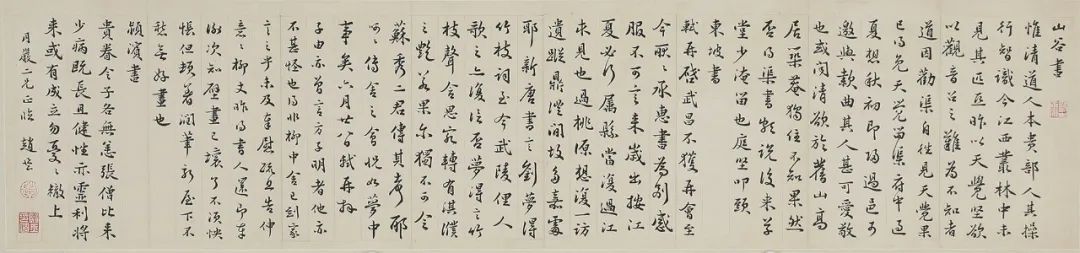 山谷書
惟清道人本貴部人其操
行智識今江西叢林中未
見其匹亞昨以天覺坚欲
以觀音召之難為不知者
道因勸渠自往見天覺果
已得免天覺留渠府中過
夏想秋初即歸過邑可
邀與款曲其人甚可愛敬
也或聞清欲於舊山高
居築菴獨住不知果然
否得渠書頗說後来草
堂少淹留也庭坚叩頭
東坡書
軾再啟武昌不獲再會至
今耿承惠書為别感
服不可言来歲出按江
夏必行屬縣當復過江
未見也過桃源想復一訪
遺蹤鼎澧間故多嘉處
耶新唐書言劉夢得
竹枝詞至今武陵俚人
歌之亦復信否夢得言竹
枝聲含思宛轉有淇濮
之艷若果尔獨不可令
蘇秀二君傳其声耶
呵呵傳舍之會怳如夢中
事矣六月廿八日軾再拜
子由亦曾言方子明者他亦
不甚怪也得非柳中舍已到家
言之乎未及奉慰疏且告伸
意意柳丈昨得書人還即奉
謝次知壁畫已壞了不須怏
悵但頓著潤筆新屋下不
愁無好畫也
潁濱書
貴眷令子各無恙張傳比来
少病既長且健性亦靈利将
来或有成立勿憂之轍上
月巖二兄正臨 趙